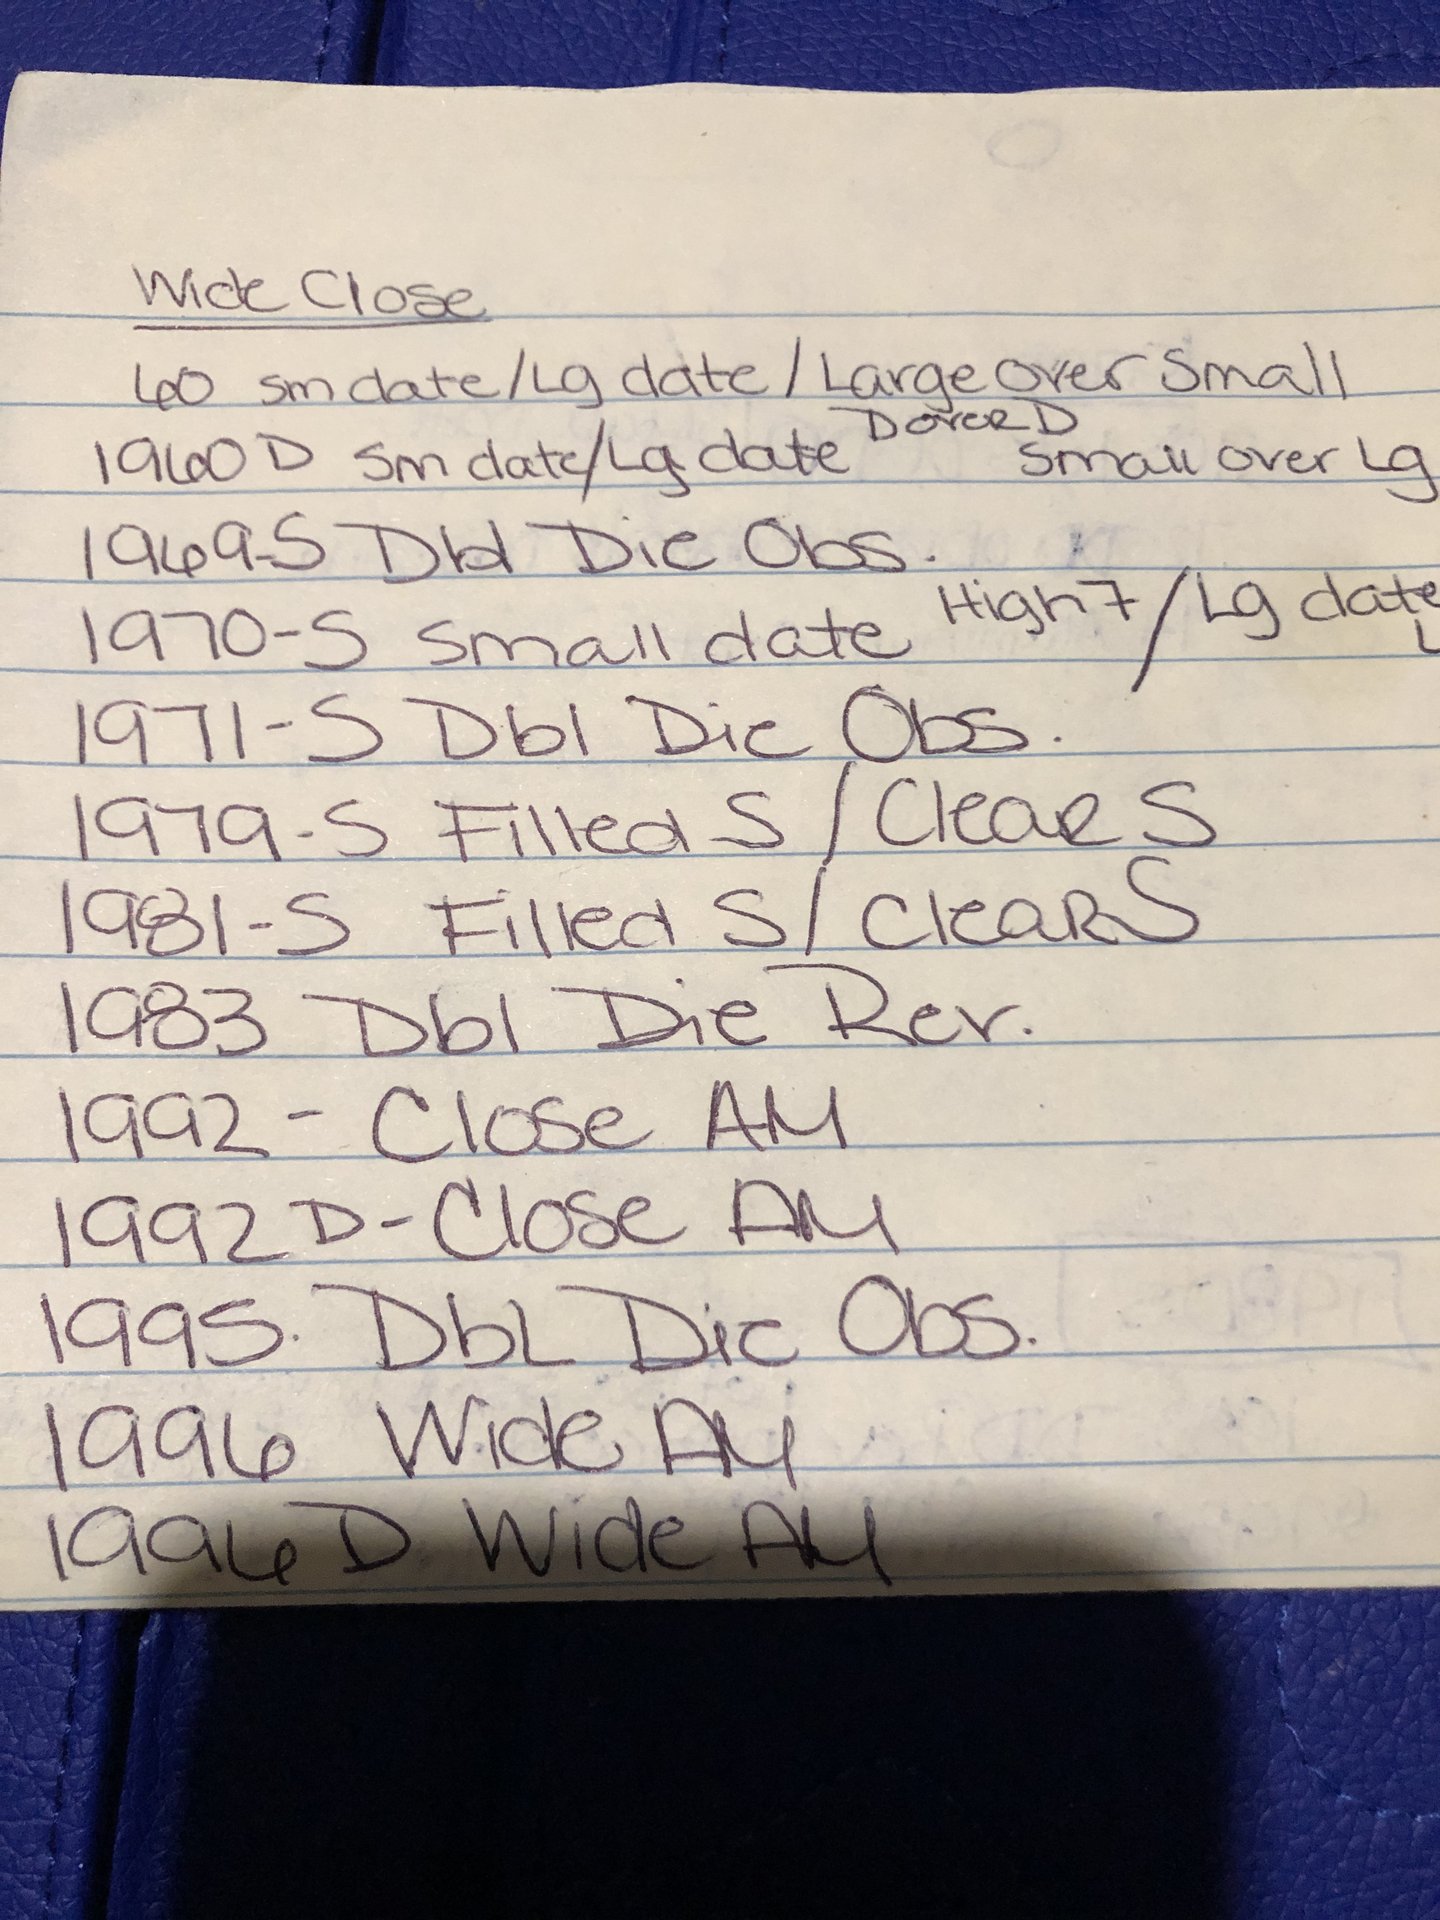 Wide Close
60 sm date/Lg date / Large over Small
1960 D Sm date/Lg date D over D Small over Lg
1969-S Dbl Die Obs.
1970-S Small date High 7 / Lg date
1971-S Dbl Die Obs.
1979-S Filled S / Clear S
1981-S Filled S / Clear S
1983 Dbl Die Rev.
1992 - Close AM
1992 D - Close AM
1995. DbL Die Obs.
1996 Wide AM
1996 D Wide AM